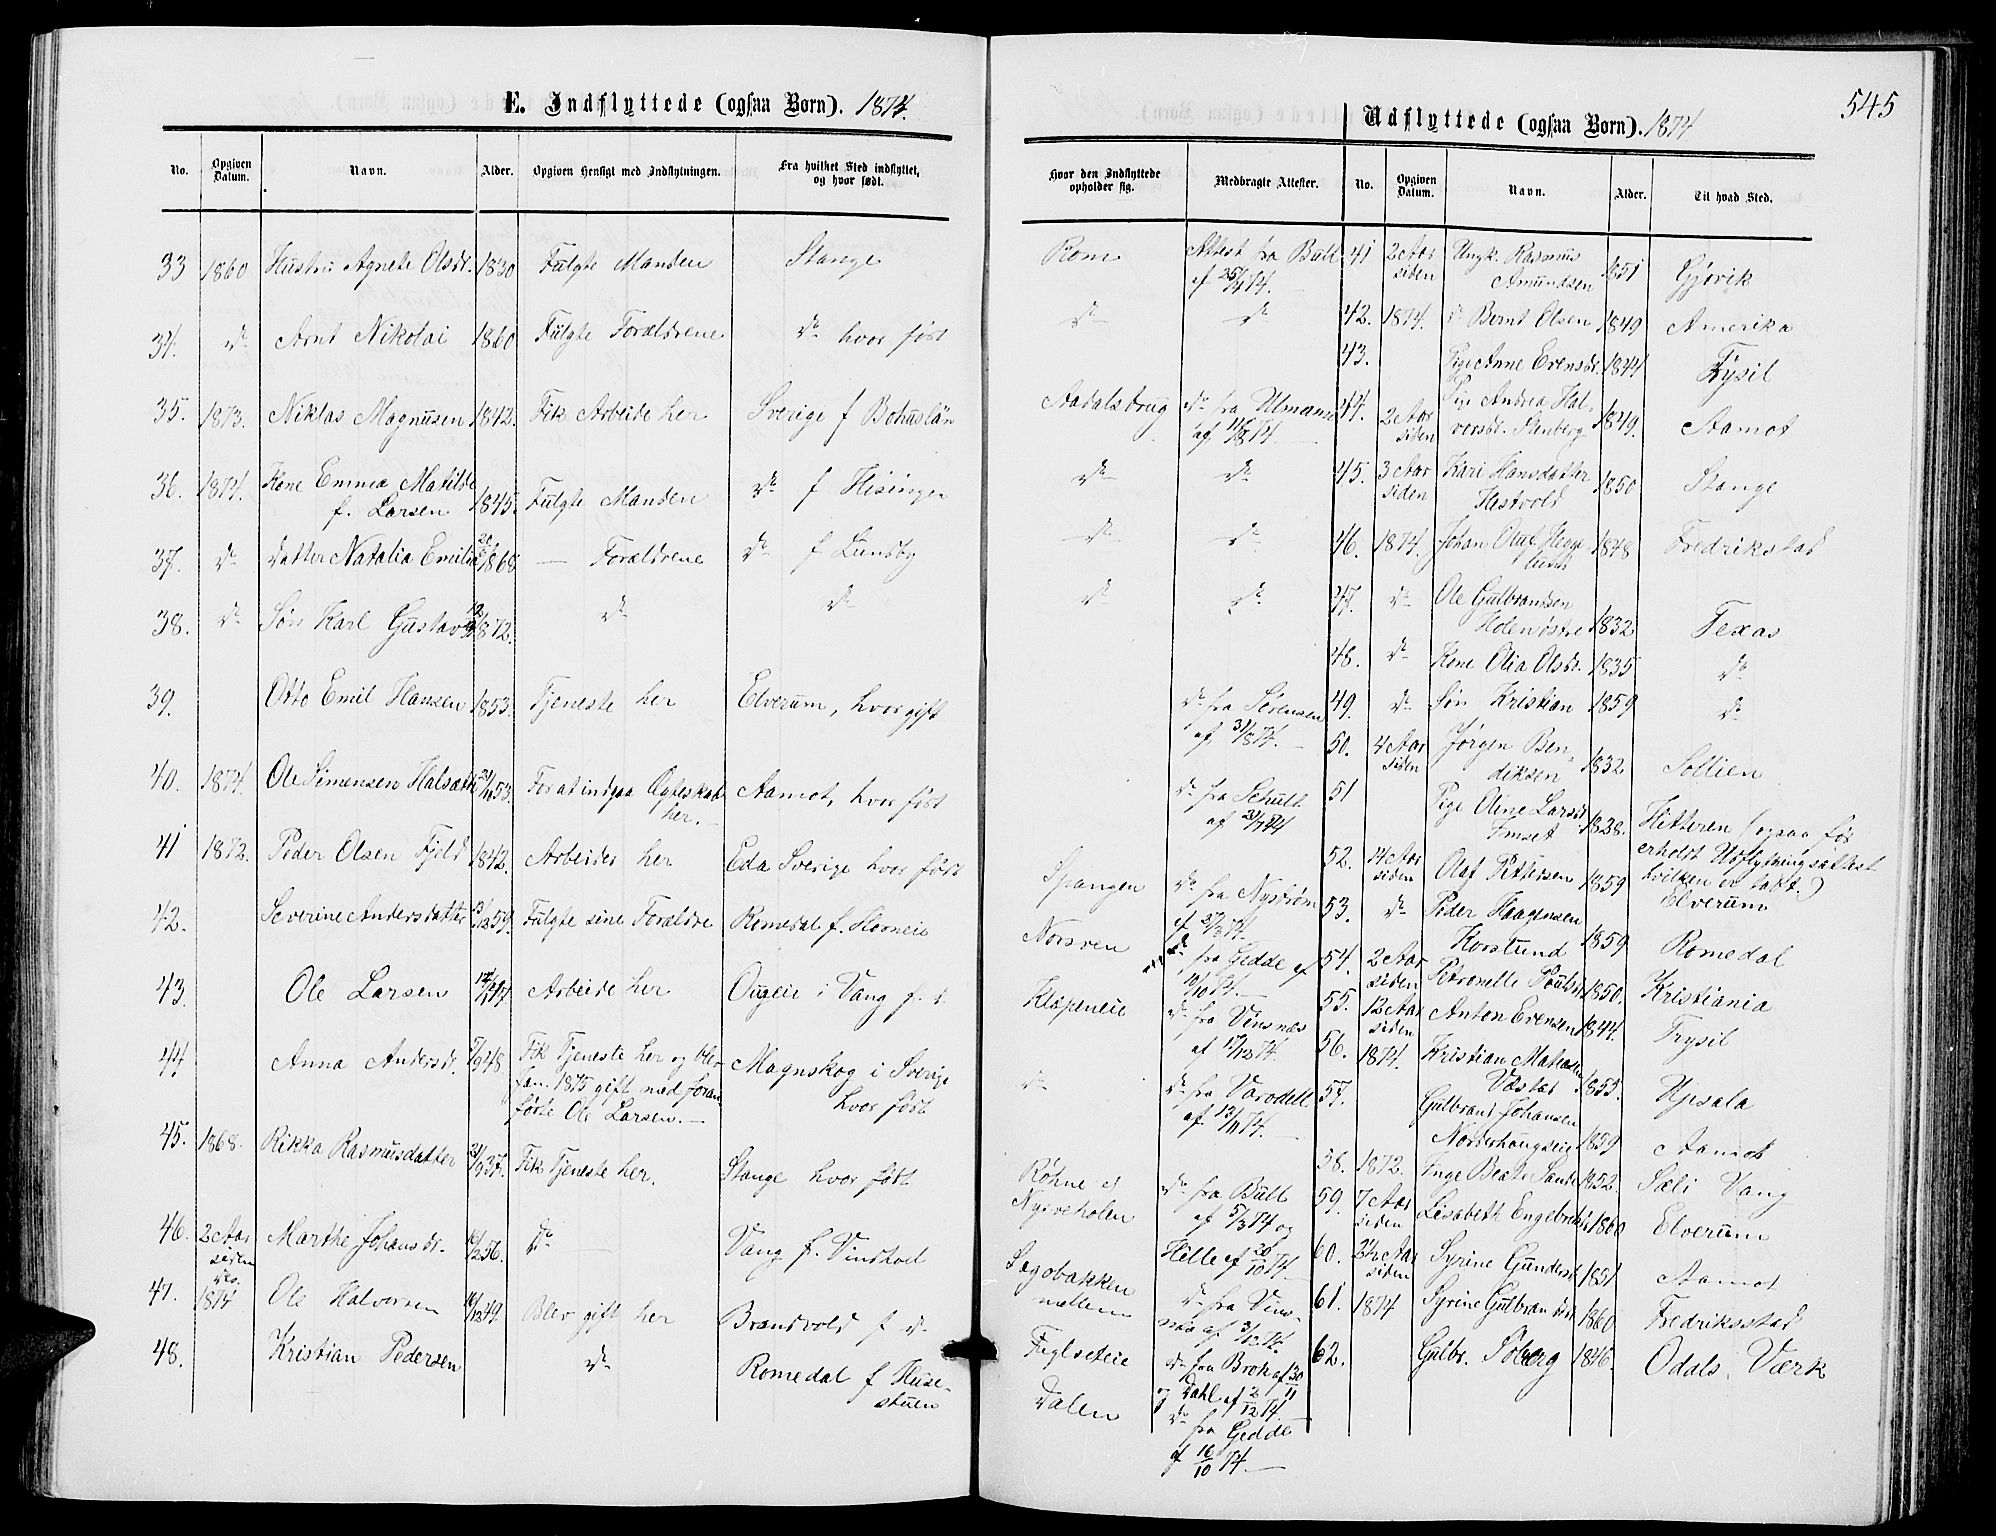 E. Indflyttede (ogsaa Børn). 1874.
No. Opgiven Datum. Navn. Alder. Opgiven Hensigt med Indflytningen. Fra hvilket Sted indflyttet, og hvor født.
33 1860 Hustru Agnete Olsdr. 1830 Fulgte Manden Stange
34. do Arnt Nikolai 1860 Fulgte Forældrene do hvor født
35. 1873. Niklas Magnusen 1842. Fik Arbeide her Sverige f Bohuslän
36. 1874. Kone Emma Matilde
f. Larsen 1845. Fulgte Manden do f Hisingen
37. do datter Natalia Emilie 1868 — Forældrene do f Lundby
38. do Søn Karl Gustav 1872. do do
39. Otto Emil Hansen 1853. Tjeneste her Elverum, hvor gift
40. 1874. Ole Simensen Halsæth 53. For at indgaa Ægteskab
her. — Aamot, hvor født
41 1872. Peder Olsen Fjeld 1842. Arbeider her Eda Sverige hvor født
42. Severine Andersdatter 59. Fulgte sine Forældre Romedal f.
43. Ole Larsen 47. Arbeide her i Vang f. d.
44 Anna Andersdr. 5/9 48 Fik Tjeneste her og blev
Jan. 1875 gift med foran-
førte Ole Larsen. — Magnskog i Sverige
hvor født
45. 1868. Rikka Rasmusdatter 37. Fik Tjeneste her. Stange hvor født
46. 2 Aar
siden Marthe Johansdr. 56. do — Vang f.
47. Des.
1874 Ole Halvorsen 49. Blev gift her Brandvold f do
48. Kristian Pedersen do Romedal f Huse-
stuen
545
Udflyttede (ogsaa Børn). 1874
Hvor den Indflyttede opholder sig. Medbragte Attester. No. Opgiven Datum. Navn. Alder. Til hvad Sted.
Rom Attest fra Bull
af 25/4 74. —
do do
Aadalsbrug do fra Ulmann
af 11/8 74. —
do do
do do
do do
do fra Sørensen
af 31/8 74. —
do fra Schult
af
Spangen do fra Nystrøm
af 27/3 74.
Norsven do fra Gedde af
10/10 74. —
Klæpeneie do fra Vinsnæs
af 17/12 74.
do do fra
af 13/11 74. —
Røhne et
Nysveholen do fra Bull
af 5/3 74 og
Hille af 26/10 74.
Sagbakken
mellem do fra Vins-
næs af 3/12 74.
Figlseteie do fra Brok af 30/11
og Dahl af 2/12 74.
Dalen do fra Gedde
af 16/10 74. —
41 2 Aar
siden Ungk. Rasmus
Amundsen 1851 Gjøvik
42. 1874. do Bernt Olsen 1849 Amerika
43. Pige Anne Evensdr. 1844 Trysil
44. 2 Aar
siden Pige Andrea Hal-
vorsdr. Stenberg 1849. Aamot
45. 3 Aar
siden Kari Hansdatter
Hestvold 1850 Stange
46. 1874. Johan Oluf Hegge
lund 1848 Fredrikstad
47. do Ole Gulbrandsen
Holenøstre 1832 Texas
48. do Kone Olia Olsdr. 1835 do
49. do Søn Kristian 1859 do
50. 4 Aar
siden Jørgen Ben-
diksen 1832 Sollien
51 Pige Oline Larsdr
Imset 1828. Hitteren (ogsaa før
erholdt Udflytningsattest
hvilken er tabt.)
52. 14 Aar
siden Olaf Pettersen 1859 Elverum
53. do Peder Haagensen
Korslund 1859 Romedal
54. 2 Aar
siden Petronelle Poulsdr. 1850. Kristiania
55. 12 Aar
siden Anton Evensen 1844. Trysil
56. 1874. Kristian
1855. Upsala
57. Gulbrand Johansen
Norderhaugseie 1859 Aamot
58. 1872. Inge Beate Sande 1852. Sæli Vang
59. 7 Aar
siden Lisabeth 1860 Elverum
60. 2½ Aar
siden Syrine Gundersdr. 1851 Aamot
61. 1874 Syrine Gulbrandsdr. 1860 Fredriksstad
62. Gulbr. Soberg 1846. Odals. Værk